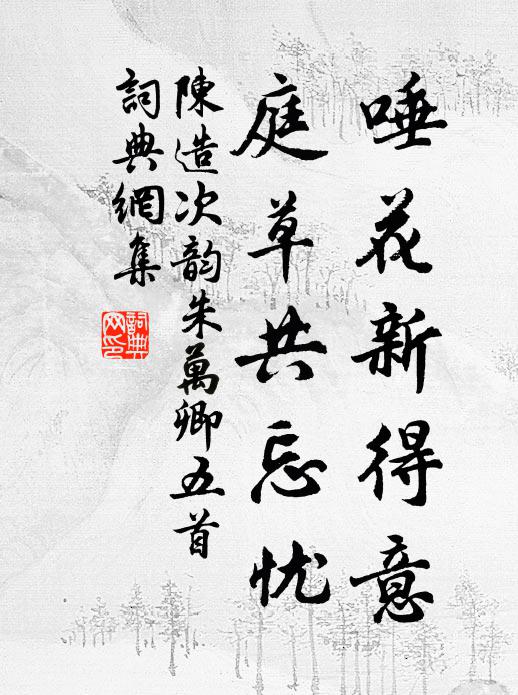 唾花新得意
庭草共忘忧
陳造次韵朱萬卿五首
詞典網集
詞典網印